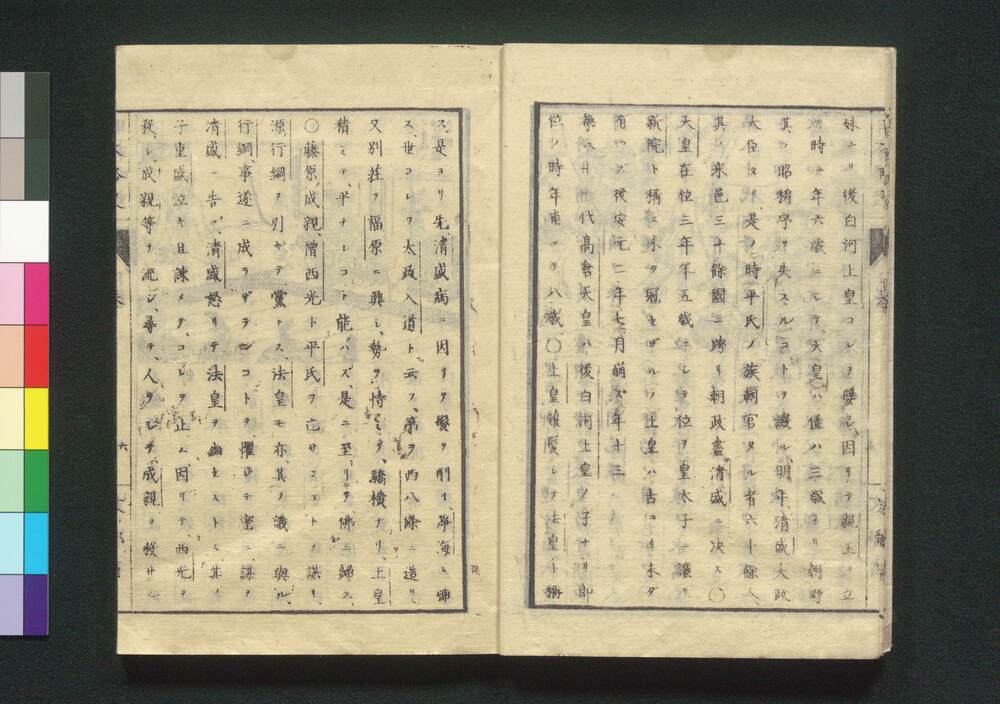 妹ナリ後白河上皇コレヲ嬖シ因リテ親王ヲ立
時ニ年六歳ニシテ天皇ハ僅ハ三歳ナリ朝野
其ノ昭穆序ヲ失スルコトヲ譏ル明年清盛大政
大臣タリ是ノ時平氏ノ族朝官タル者六十餘人
其ノ釆邑三十餘國ニ跨リ朝政盡清盛ニ決ス〇
天皇在位三年年五歳ニシテ位ヲ皇太子ニ讓リ
新院ト稱ス未タ冠セザルノ上皇ハ古ヨリ未ダ
有ラズ後安元二年七月崩ズ年十三
第八十代高倉天皇ハ後白河上皇ノ子ナリ即
位ノ時年甫メテ八歳〇上皇鬚髪シテ法皇ト稱
ス是ヨリ先清盛病ニ因リテ髪ヲ削リ淨海ト號
ス世コレヲ太政入道ト云フ第ヲ西八條ニ造リ
又別莊ヲ福原ニ興シ勢ヲ恃ミテ驕横ナリ上皇
積ミテ平ナルコト能ハズ是ニ至リテ佛ニ歸ス
〇藤原成親僧西光ト平氏ヲ亡サンコトヲ謀リ
源行綱ヲ別ギテ黨トス法皇モ亦其ノ議ニ與ル
行綱事遂ニ成ラザランコトヲ懼レテ密ニ謀ヲ
清盛ニ告グ清盛怒リテ法皇ヲ幽セストス其ノ
子重盛泣キ且諫メテコレヲ止ム因リテ西光ヲ
殺シ成親等ヲ流シ尋テ人ヲシテ成親ヲ殺サシ
六